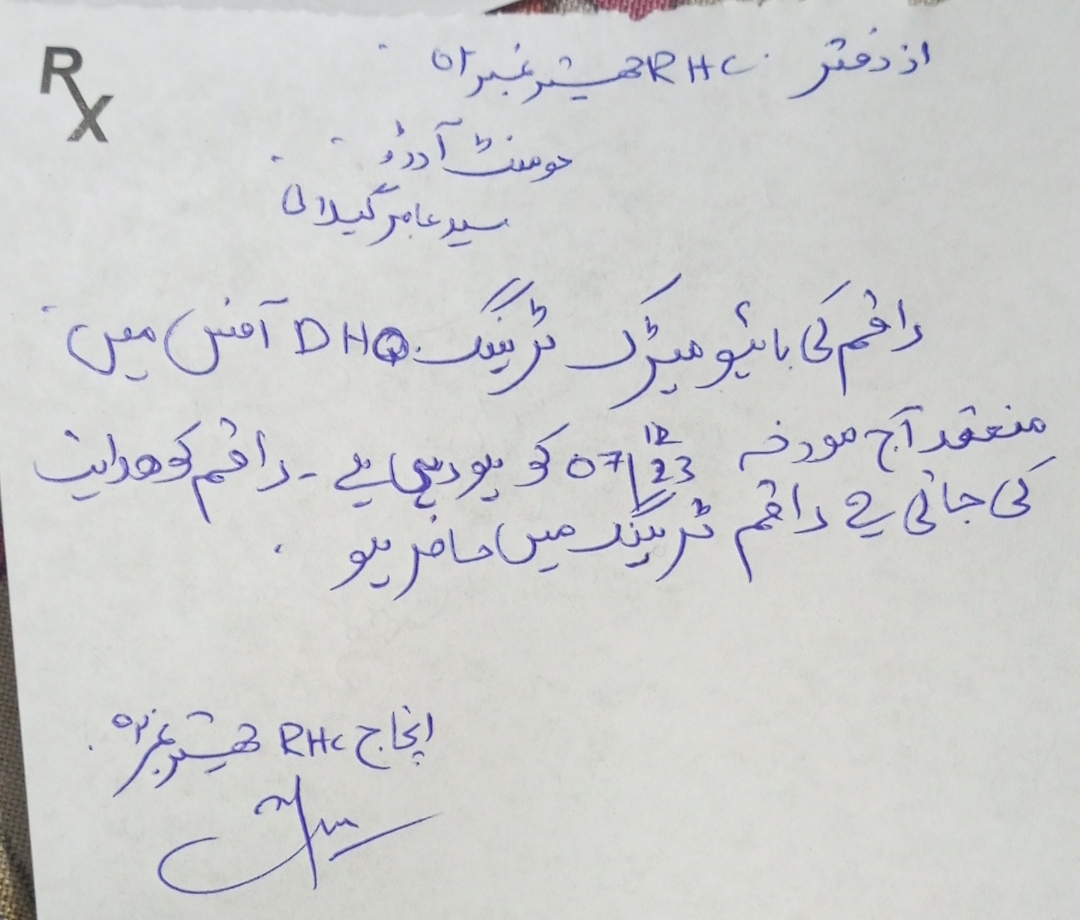 Rx
از دفتر RHC تھیتر نمبر 02
موومنٹ آرڈر
سید عامر گیلانی
راقم کی بائیو میٹرک ٹریننگ DHO آفس میں
منعقد آج مورخہ 07/12/23 کو ہو رہی ہے ۔ راقم کو ھدایت
کی جاتی ہے راقم ٹریننگ میں حاضر ہو
انچارج RHC